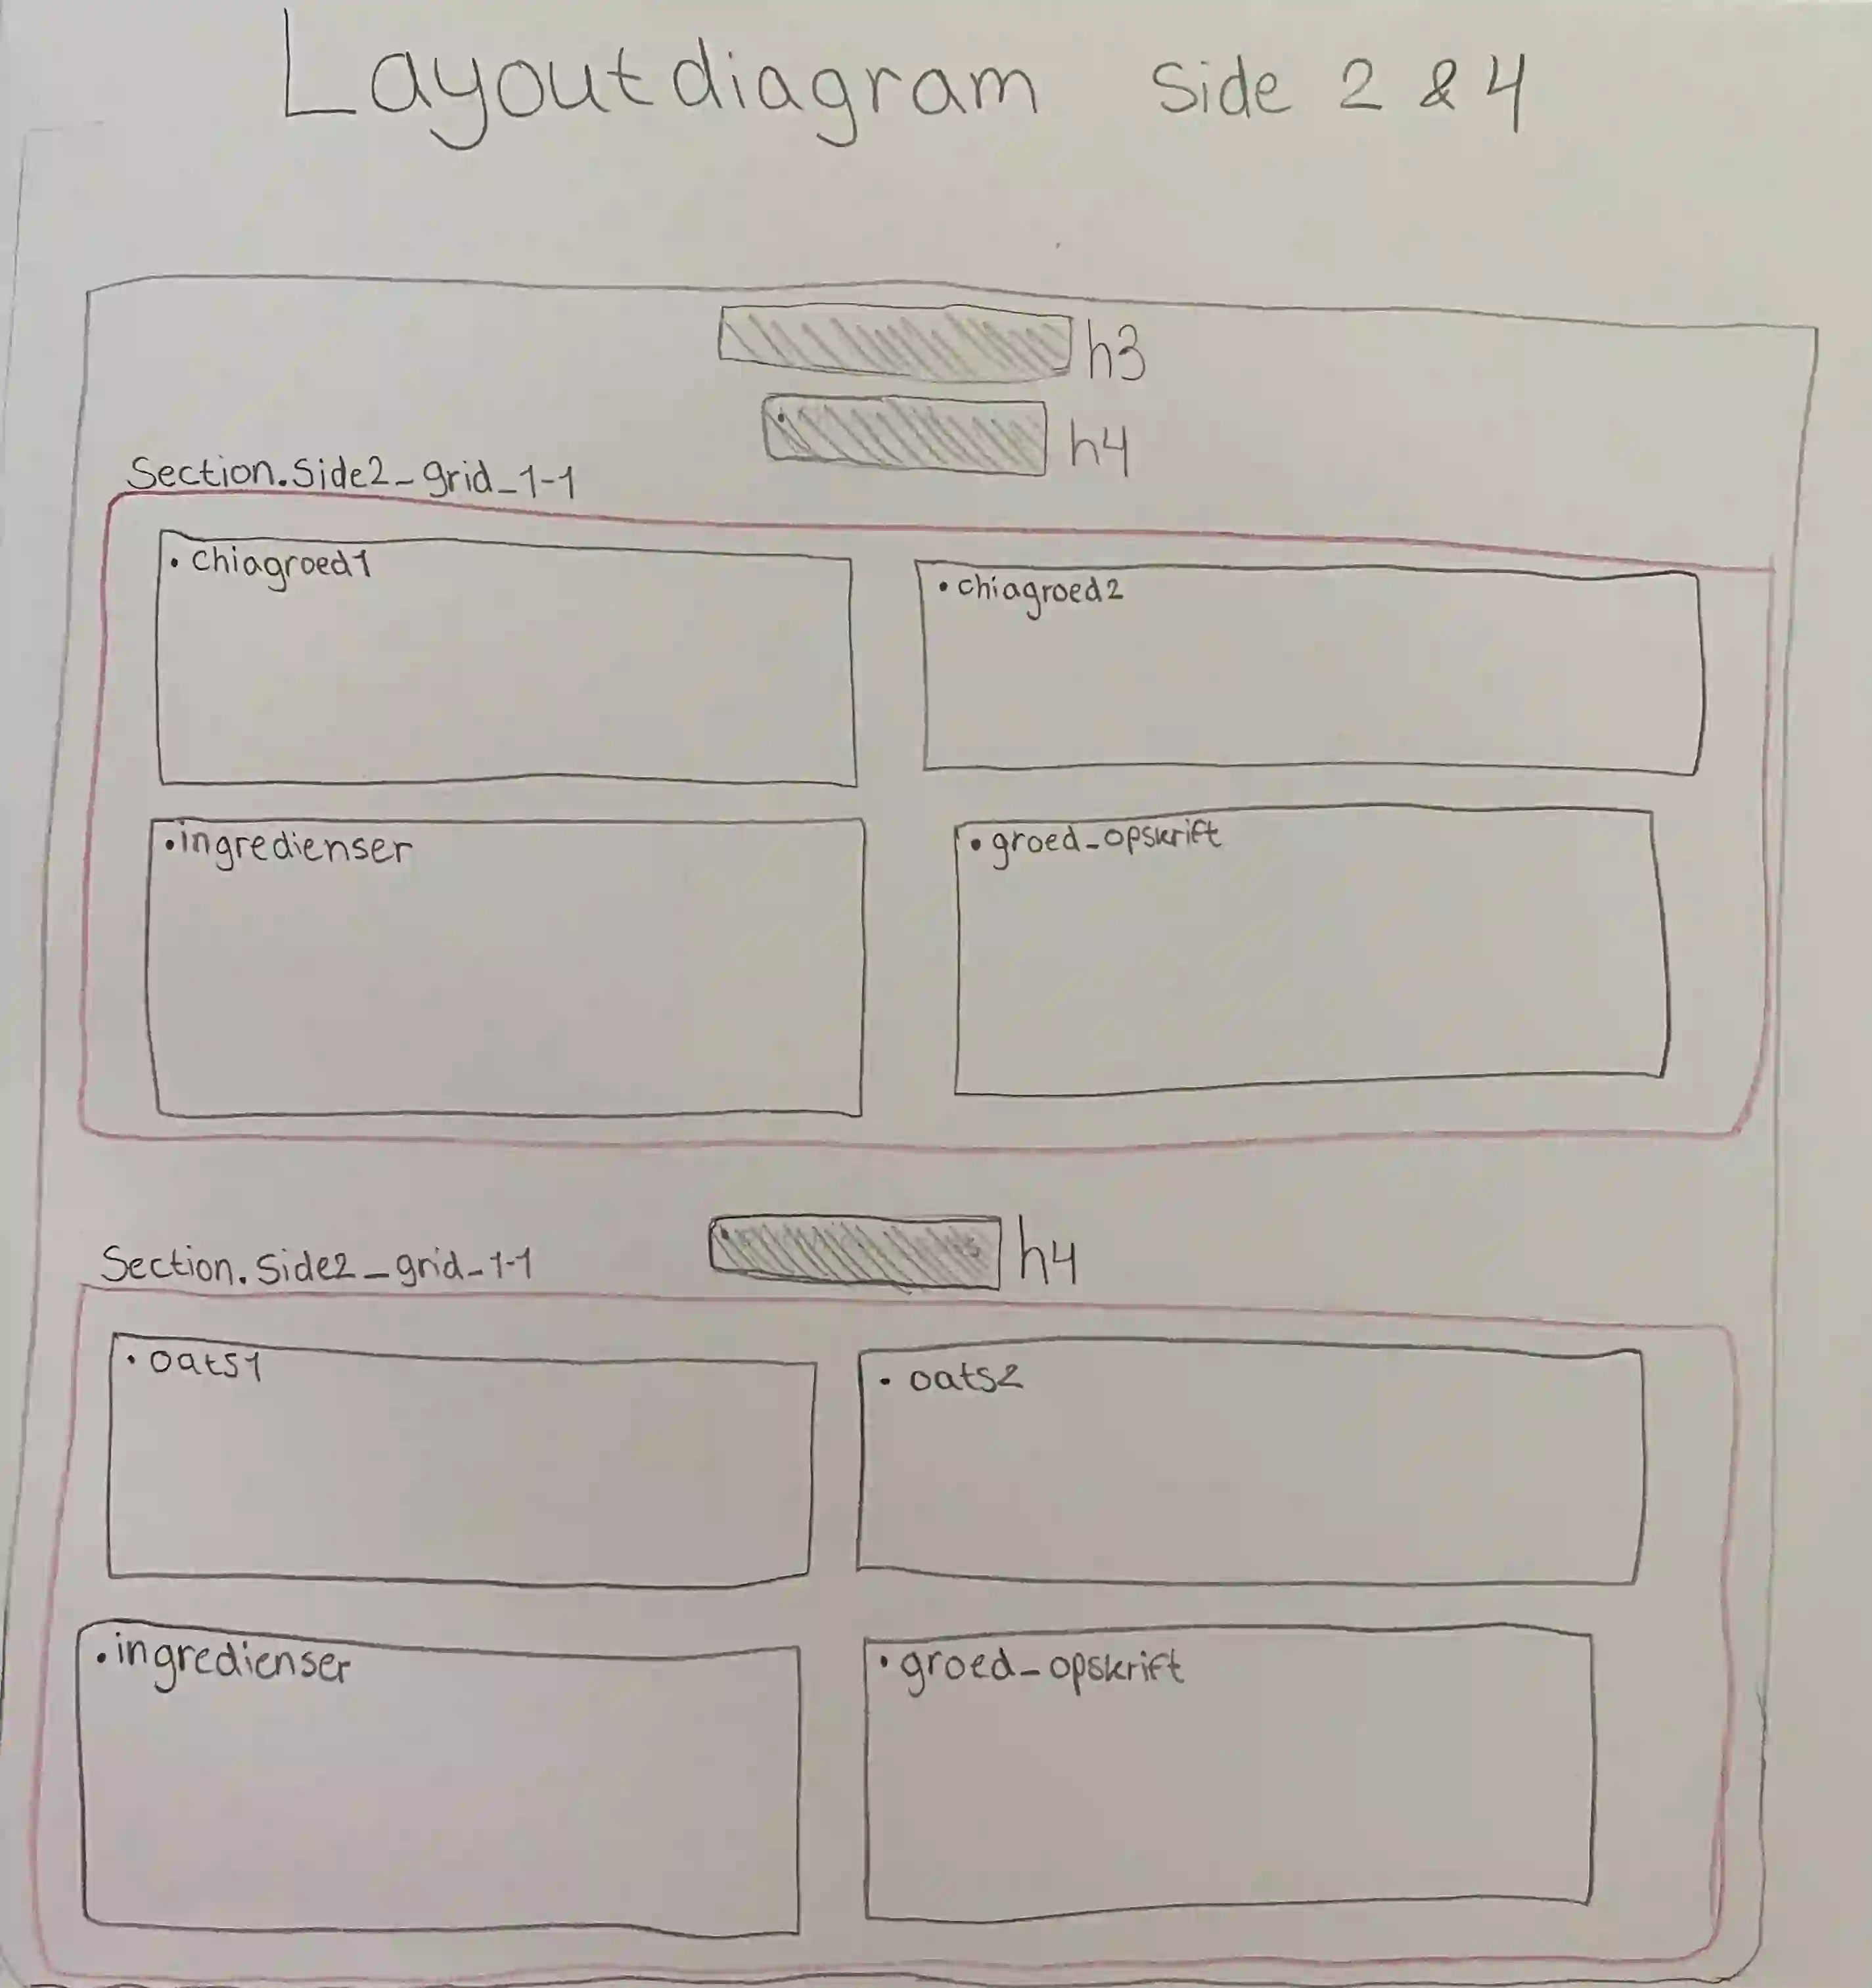 Layoutdiagram side 2 & 4
h3
h4
Section.Side2_grid_1-1
• chiagroed1
• chiagroed2
• ingredienser
• groed_opskrift
h4
Section.Side2_grid_1-1
• oats1
• oats2
• ingredienser
• groed_opskrift